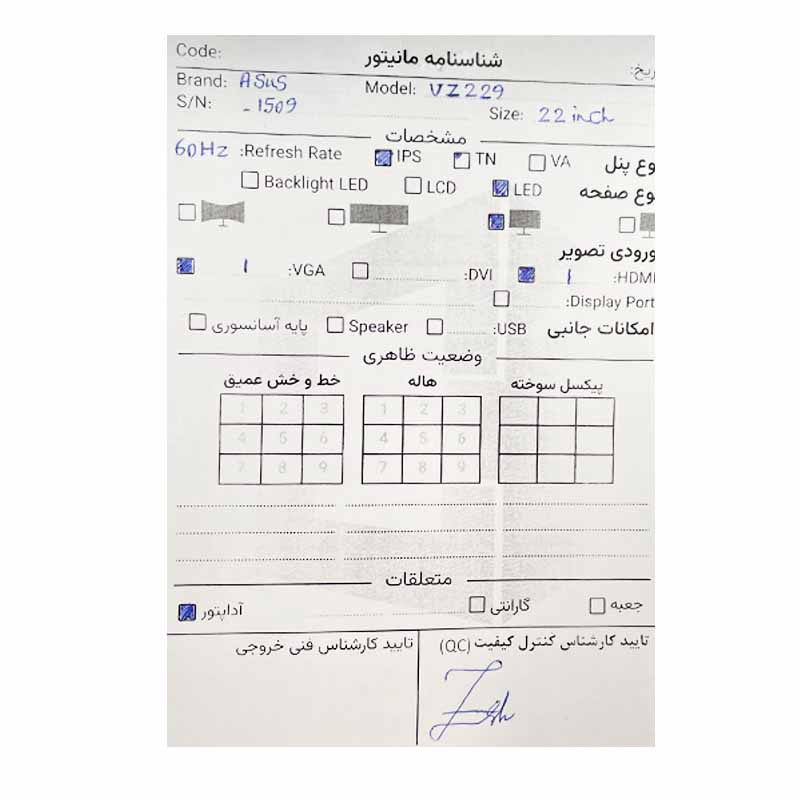 Code: شناسنامه مانیتور ریخ:
Brand: ASUS Model: VZ229
S/N: -1509 Size: 22 inch
مشخصات
وع پنل VA TN IPS Refresh Rate: 60HZ
وع صفحه LED LCD Backlight LED
ورودی تصویر
HDMI: 1 DVI: VGA: 1
Display Port:
امکانات جانبی USB: Speaker پایه آسانسوری
وضعیت ظاهری
پیکسل سوخته هاله خط و خش عمیق
1 2 3 1 2 3
4 5 6 4 5 6
7 8 9 7 8 9
متعلقات
جعبه گارانتی آداپتور
تایید کارشناس کنترل کیفیت (QC) تایید کارشناس فنی خروجی